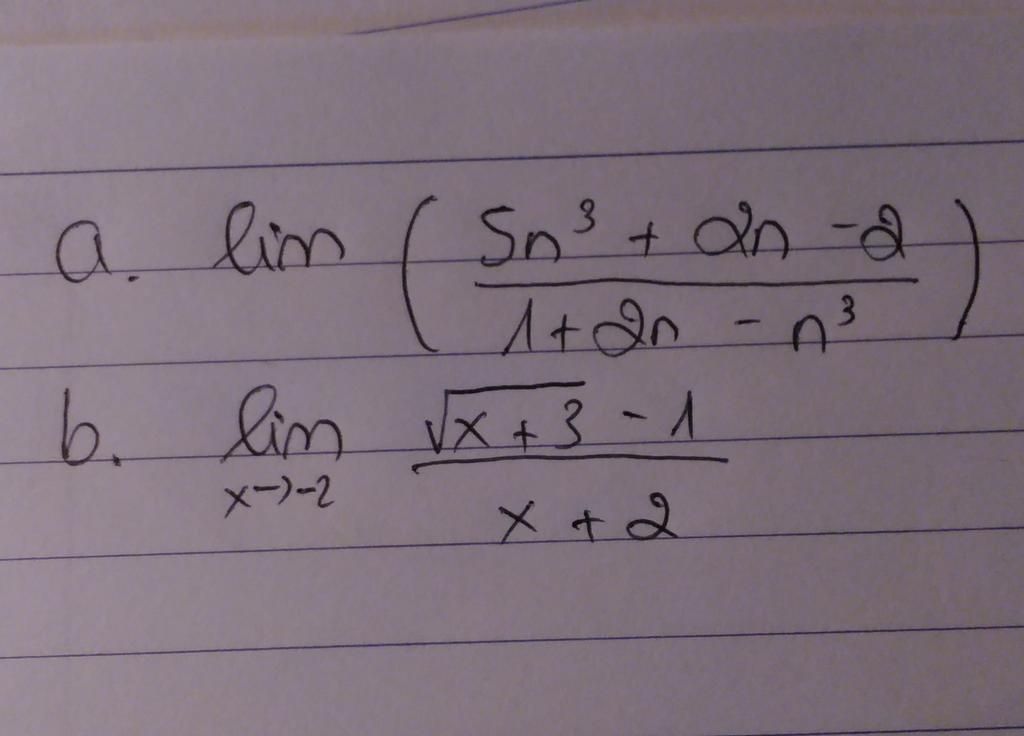 a. lim ( (5n³ + 2n - 2) / (1 + 2n - n³) )
b. lim x→-2 (√(x + 3) - 1) / (x + 2)